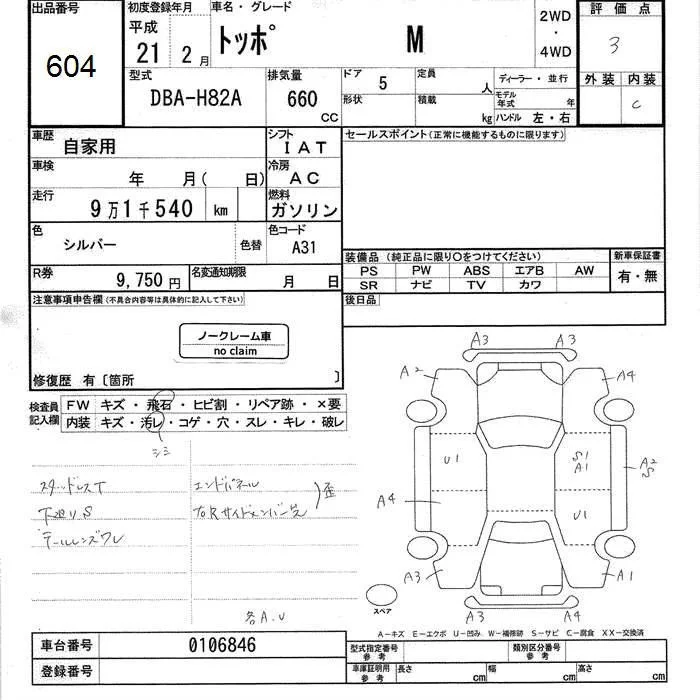 出品番号 初度登録年月 車名・グレード 2WD 評価点
604 平成 21 2月 トッポ M ・ 4WD 3
型式 排気量 ドア 5 定員 人 ディーラー・並行 外装 内装
DBA-H82A 660 CC 形状 積載 kg モデル年式 年 ハンドル 左・右 C
車歴 自家用 シフト IAT セールスポイント(正常に機能するものに限ります)
車検 年 月( 日) 冷房 AC
走行 9万1千540 km 燃料 ガソリン
色 シルバー 色替 色コード A31
装備品 (純正品に限り○をつけてください) 新車保証書
PS PW ABS エアB AW 有・無
SR ナビ TV カワ
R券 9,750円 名変通知期限 月 日
後日品
注意事項申告欄(不具合内容等は具体的に記入して下さい)
ノークレーム車
no claim
修復歴 有〔箇所 〕
検査員記入欄 FW キズ・飛石・ヒビ割・リペア跡・×要
内装 キズ・汚レ・コゲ・穴・スレ・キレ・破レ
シミ
スタッドレスT エンドパネル
下廻りS 右Rサイドメンバー 歪
テールレンズワレ
各A.U
A3 A3
A2 A4
U1 S1 A1 A2 S
A4 U1
A3 A1
A3 A4
スペア
A−キズ E−エクボ U−凹み W−補修跡 S−サビ C−腐食 XX−交換済
車台番号 0106846 型式指定番号 参考 類別区分番号 参考
登録番号 車庫証明用 参考 長さ cm 幅 cm 高さ cm